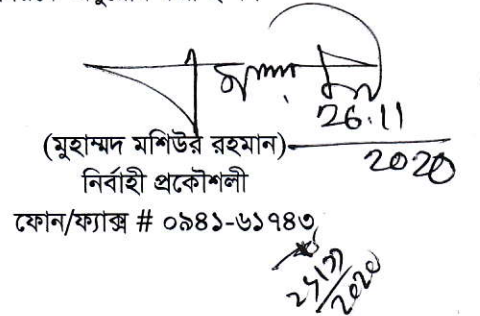 26.11
2020
(মুহাম্মদ মশিউর রহমান)
নির্বাহী প্রকৌশলী
ফোন/ফ্যাক্স # ০৯৪১-৬১৭৪৩